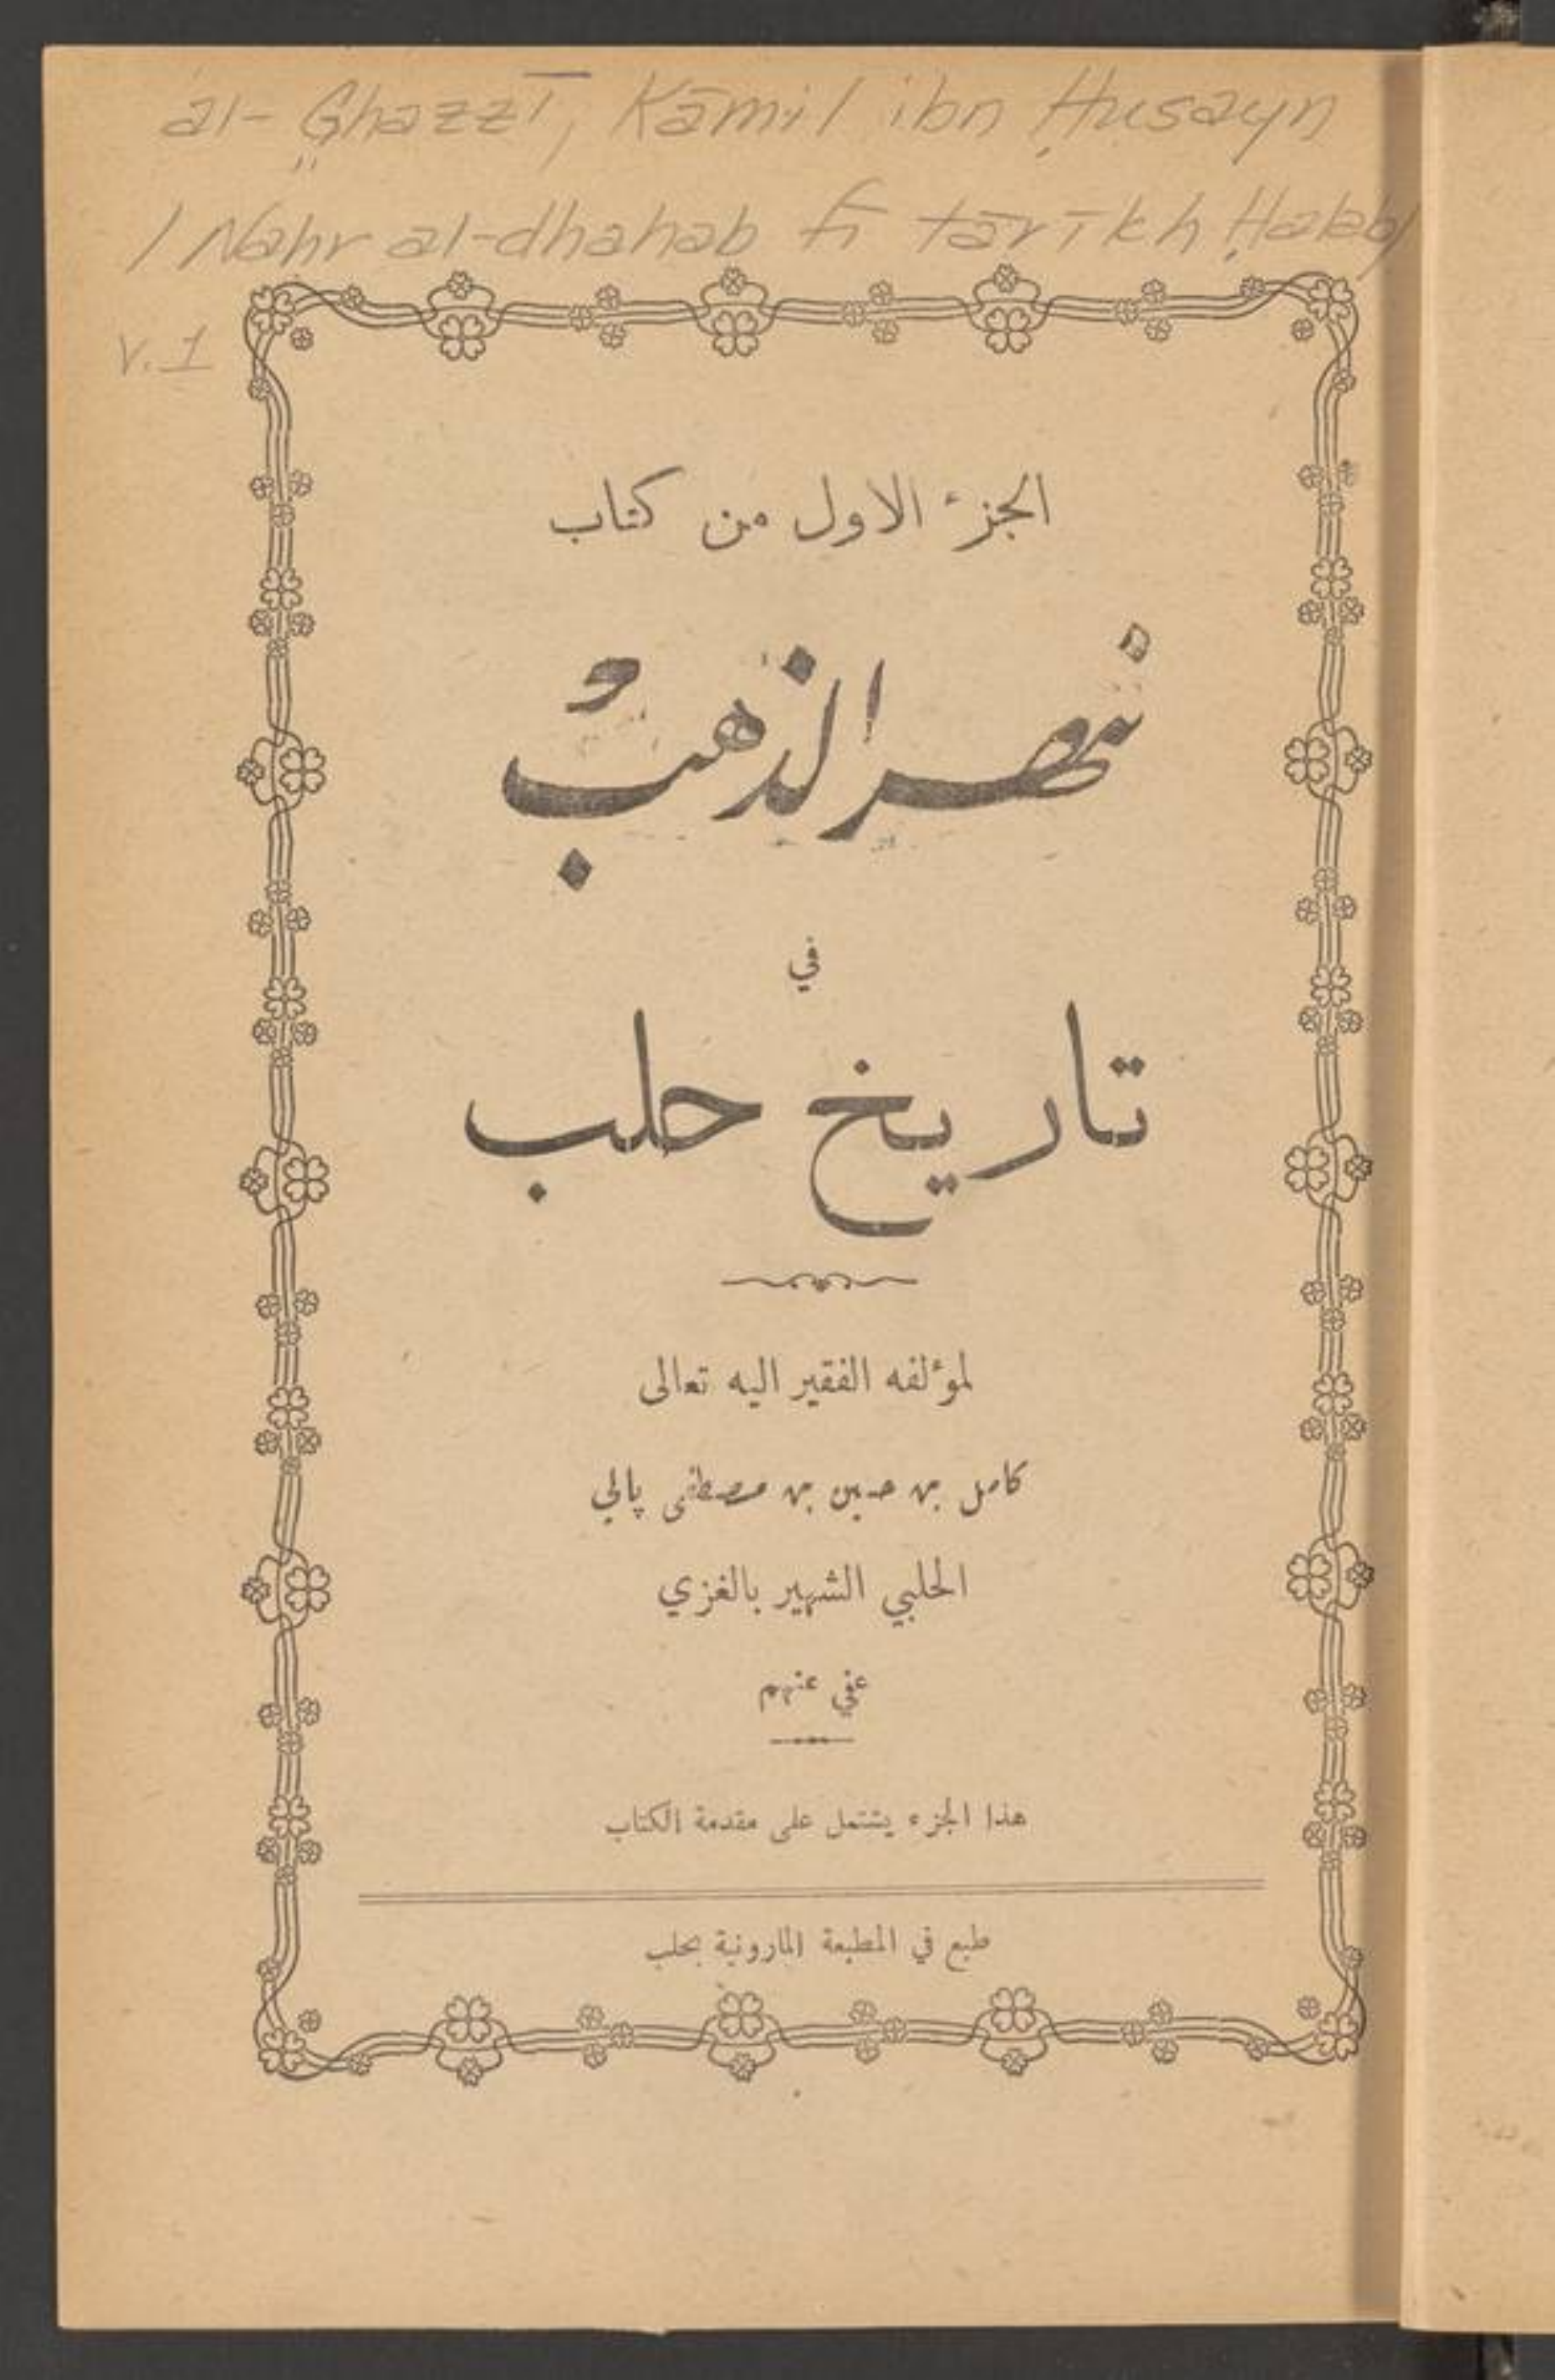 al-Ghazzī, Kāmil ibn Ḥusayn
/ Nahr al-dhahab fī tārīkh Ḥalab/
v. 1
الجزء الاول من كتاب
نهر الذهب
في
تاريخ حلب
لمؤلفه الفقير اليه تعالى
كامل بن حسين بن مصطفى پالي
الحلبي الشهير بالغزي
عفي عنهم
هذا الجزء يشتمل على مقدمة الكتاب
طبع في المطبعة المارونية بحلب